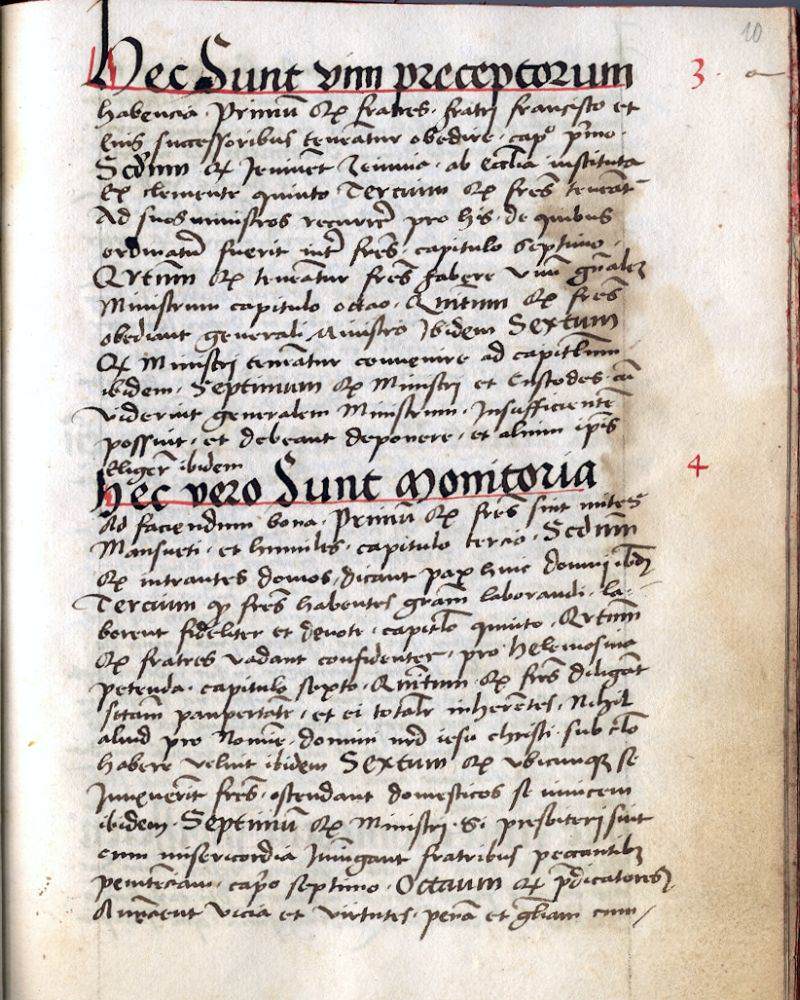 10
Hec Sunt vim preceptorum
3 · a
habencia · Primū Qꝫ fratres · fratri francisco et
euis successoribus teneātur obedire · capº p̄mo ·
Scd̄um Qꝫ Jeiunēt Jeiunia · ab ecclīa instituta
Ex clemente quinto Tercium Qꝫ frēs teneāt
Ad suos ministros recurrer̄ pro his · de quibus
ordinatū fuerit int̄ frēs · capitulo septimo ·
Qrtūm Qꝫ teneātur frēs habere vnū gn̄alē
Ministrum capitulo octao · Quītum Qꝫ frēs
obediant generali Ministro Ibidem Sextum
Qꝫ Ministri teneātur conuenire ad capitl̄um
ibidem · Septimum Qꝫ Ministri et Custodes · cū
viderint generalem Ministrum · Insufficientē
possint · et debeant deponere · et alium ip̄is
Eliger̄ ibidem
hec vero Sunt Monitoria
4
Ad faciendum bona · Primū Qꝫ frēs sint mites
Mansueti · et humiles · capitulo tercio · Scd̄um
Qꝫ intrantes domos / dicant pax huic domui ibd̄ꝫ
Tercium qꝫ frēs habentes grām laborandi · la-
borent fideliter et deuote · capitl̄o quinto · Qrtūm
Qꝫ fratres vadant confidenter · pro helemosina
petenda · capitulo sexto · Quītum Qꝫ frēs diligāt
sc̄tam paupertatē · et ei totalr̄ inherentes · Nihil
aliud pro Nomīe · domini nr̄i iesu christi · sub cl̄o
habere velint ibidem Sextum Qꝫ vbicunqꝫ se
Inuenerīt frēs · ostendant domesticos se inuicem
ibidem · Septimū Qꝫ Ministri · Si presbiteri sint
cum misericordia Iniūgant fratribus peccantibꝫ
penitēciam · cap̄o septimo · Octauum Qꝫ p̄dicatores
Anūcient vicia et virtutes · penā et gl̄iam cum /